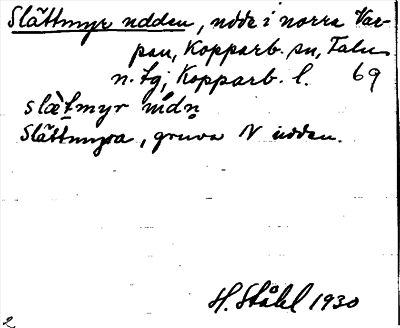 Slåttmyrudden, udde i norra Var-
pan, Kopparb. sn, Falu
n. tg; Kopparb. l. 69
slæ̀t̠myr ùdn̥
Slåttmyra, gruva N udden.
H. Ståhl 1930
2